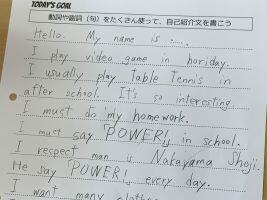 TODAY'S GOAL
動詞や副詞(句)をたくさん使って、自己紹介文を書こう
Hello. My name is ....
I play video game in horiday.
I usually play Table Tennis in
after school. It's so interesting.
I must do my homework.
I must say 「POWER!」 in school.
I respect man is Nakayama Shoji.
He say 「POWER!」 every day.
I want many